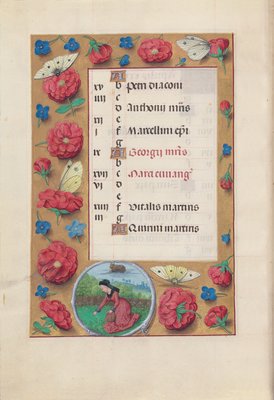 A
xv b Petri diaconi
iiii c
d Anthonii mris
xii e
i f Marcellini epi
g
ix A Georgii mris
b
xvii c Marci euang
vi d
e
xiiii f Vitalis martiris
iii g
A Quirini martiris